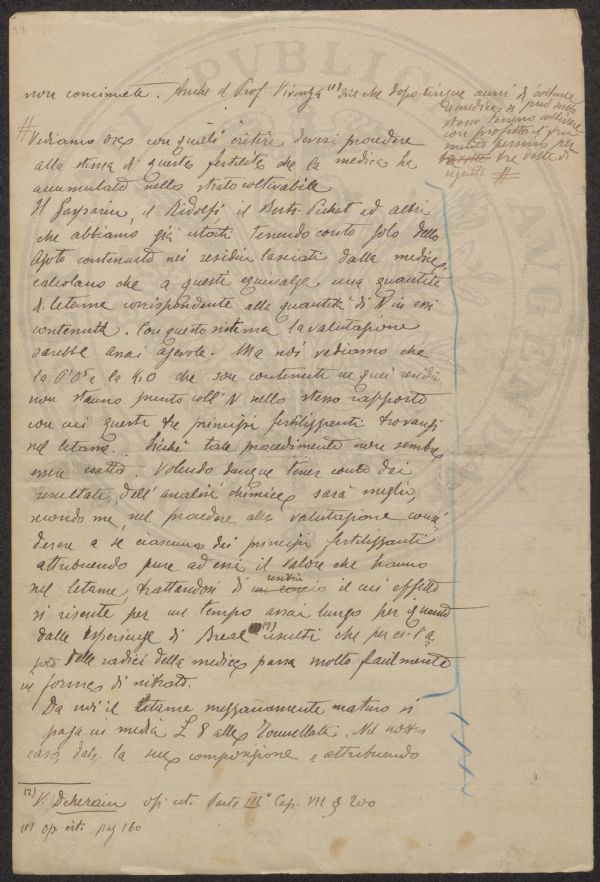 non concimate. Anche il Prof. Vivenza (1) dice che dopo cinque anni di coltura
a medica si può sullo
stesso terreno coltivare
con profitto il fru
mento persino per
tre volte di
seguito. #
# Vediamo ora con quali criteri devesi procedere
alla stima di questa fertilità che la medica ha
accumulato nello strato coltivabile
Il Gasparin, il Ridolfi, il Berti-Pichat ed altri
che abbiamo già citati tenendo conto solo dello
Azoto contenuto nei residui lasciati dalla medica,
calcolano che a questi equivalga una quantità
di letame corrispondente alla quantità di N in essi
contenuta. Con questo sistema la valutazione
sarebbe assai agevole. Ma noi vediamo che
la P²O⁵ e la K₂O che son contenute in quei residui
non stanno punto coll'N nello stesso rapporto
con cui questi tre principi fertilizzanti trovansi
nel letame. Sicchè tale procedimento non sembra
essere esatto. Volendo dunque tener conto dei
resultati dell'analisi chimica sarà meglio,
secondo me, nel procedere alla valutazione consi
derare a se ciascuno dei principi fertilizzanti
attribuendo pure ad essi il valore che hanno
nel letame, trattandosi di residui il cui effetto
si risente per un tempo assai lungo per quanto
dalle esperienze di Breal (2) risulti che per es. l'a
zoto delle radici della medica passa molto facilmente
in forma di nitrato.
Da noi il letame mezzanamente maturo si
paga in media L 8 alla Tonnellata. Nel nostro
caso, data la sua composizione e attribuendo
(2) V. Deherain op. cit. Parte IIIª Cap. VII § 200
(1) op. cit. pag 160